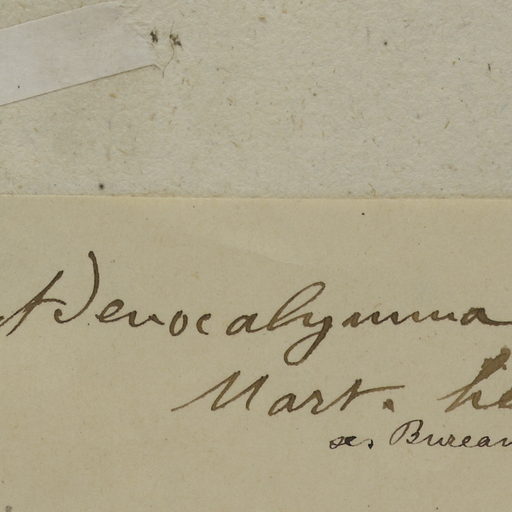 Adenocalymma
Mart. he
Bureau